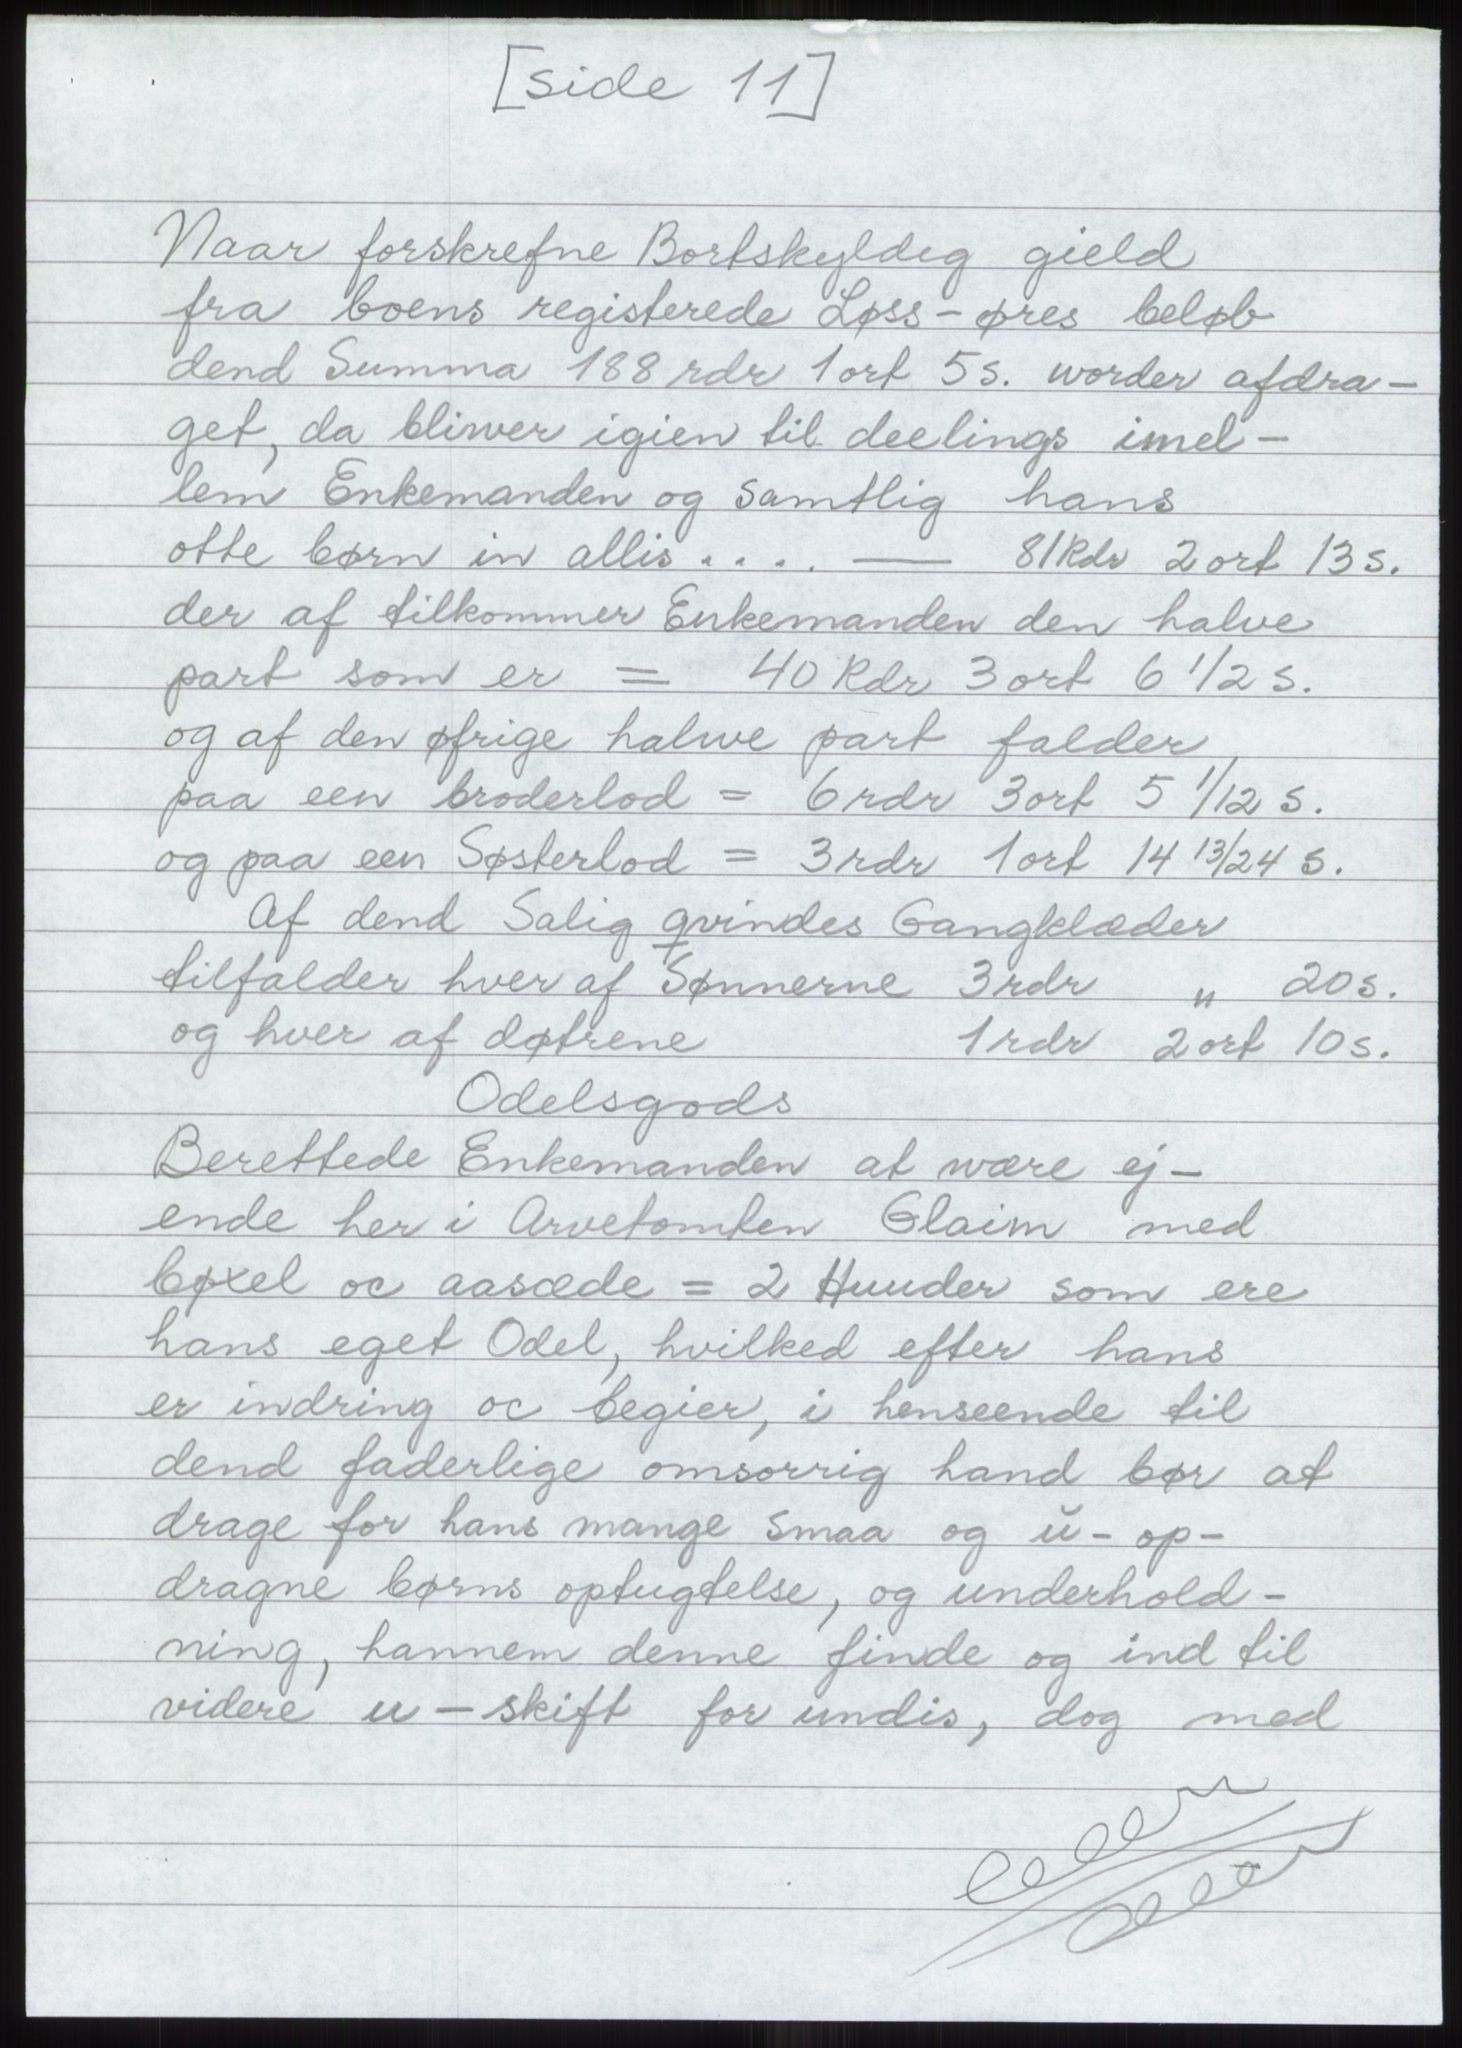 [side 11]
Naar forskrefne Bortskyldig gield
fra boens registerede Løss-øres beløb
dend Summa 188 rdr 1 ort 5 s. worder afdra-
get, da bliwer igien til deelings imel-
lem Enkemanden og samtlig hans
otte børn in allis .... — 81 Rdr 2 ort 13 s.
der af tilkommer Enkemanden den halve
part som er = 40 Rdr 3 ort 6 1/2 s.
og af den øfrige halwe part falder
paa een broderlod = 6 rdr 3 ort 5 1/12 s.
og paa een Søsterlod = 3 rdr 1 ort 14 13/24 s.
Af dend Salig qvindes Gangklæder
tilfalder hver af Sønnerne 3 rdr " 20 s.
og hver af døtrene 1 rdr 2 ort 10 s.
Odelsgods
Berettede Enkemanden at wære ej-
ende her i Arvetomten Glaim med
bøxel oc aasæde = 2 Huuder som ere
hans eget Odel, hvilked efter hans
er indring oc begier, i henseende til
dend faderlige omsorrig hand bør at
drage for hans mange smaa og ŭ-op-
dragne børns optugtelse, og underhold-
ning, hannem denne finde og ind til
videre u-skift for undis, dog med